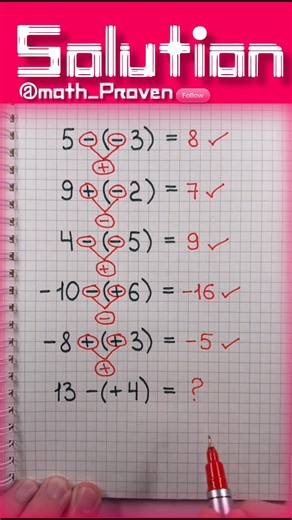 Solution
@math_Proven Follow
5 -(- 3) = 8 ✓
+
9 +(- 2) = 7 ✓
-
4 -(- 5) = 9 ✓
+
-10 -(+ 6) = -16 ✓
-
-8 +(+ 3) = -5 ✓
+
13 -(+4) = ?